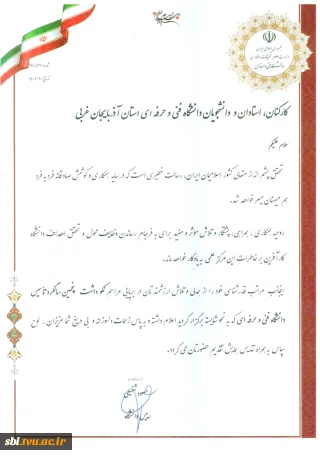 جمهوری اسلامی ایران
کارکنان، استادان و دانشجویان دانشگاه فنی و حرفه ای استان آذربایجان غربی
سلام علیکم
تحقق چشم انداز متعالی کشور اسلامیمان ایران، رسالت خطیری است که در سایه همکاری و کوشش صادقانه فرد به فرد
هم میهنان میسر خواهد شد.
روحیه همکاری، همراهی، پشتکار و تلاش مؤثر و مفید برای به فرجام رساندن وظایف محول و تحقق اهداف دانشگاه
کارآفرین بر خاطرات این مرکز علمی به یادگار خواهد ماند.
اینجانب مراتب قدرشناسی خود را از همدلی و تلاش ارزشمندتان در برپایی مراسم نکوداشت پنجمین سالگرد تاسیس
دانشگاه فنی و حرفه ای که به نحو شایسته برگزار گردید اعلام داشته و به پاس زحمات دلسوزانه و بی دریغ شما عزیزان، لوح
سپاس به همراه تندیس بدینش تقدیم حضورتان می گردد.
sbi.tvu.ac.ir